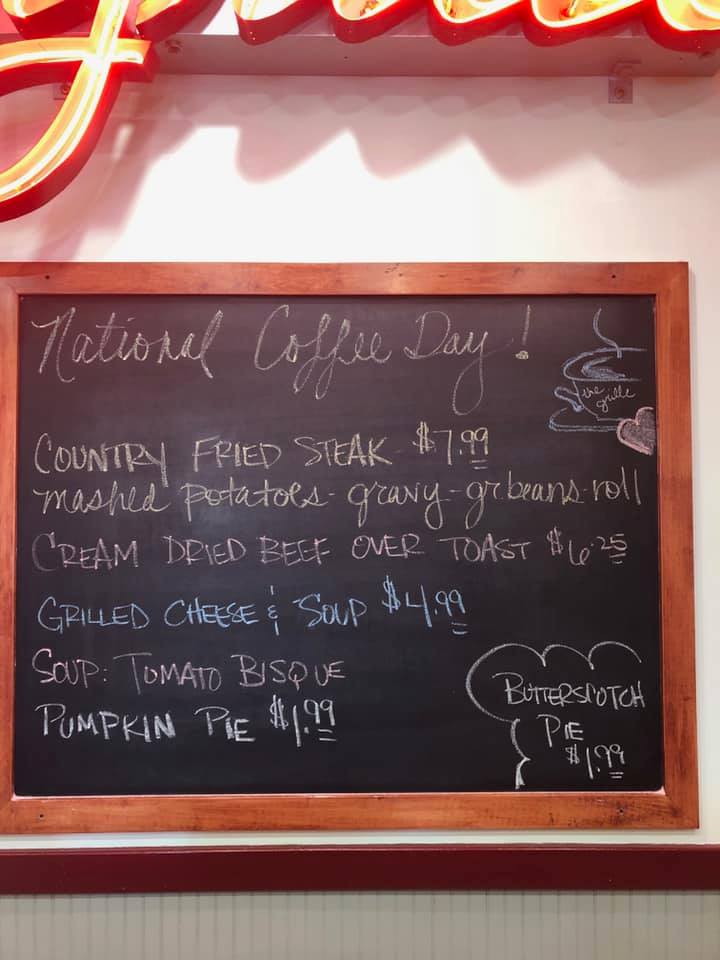 National Coffee Day!
the grille
COUNTRY FRIED STEAK $7.99
mashed potatoes - gravy - gr beans - roll
CREAM DRIED BEEF OVER TOAST $6.25
GRILLED CHEESE & SOUP $4.99
SOUP: TOMATO BISQUE
PUMPKIN PIE $1.99
BUTTERSCOTCH
PIE
$1.99